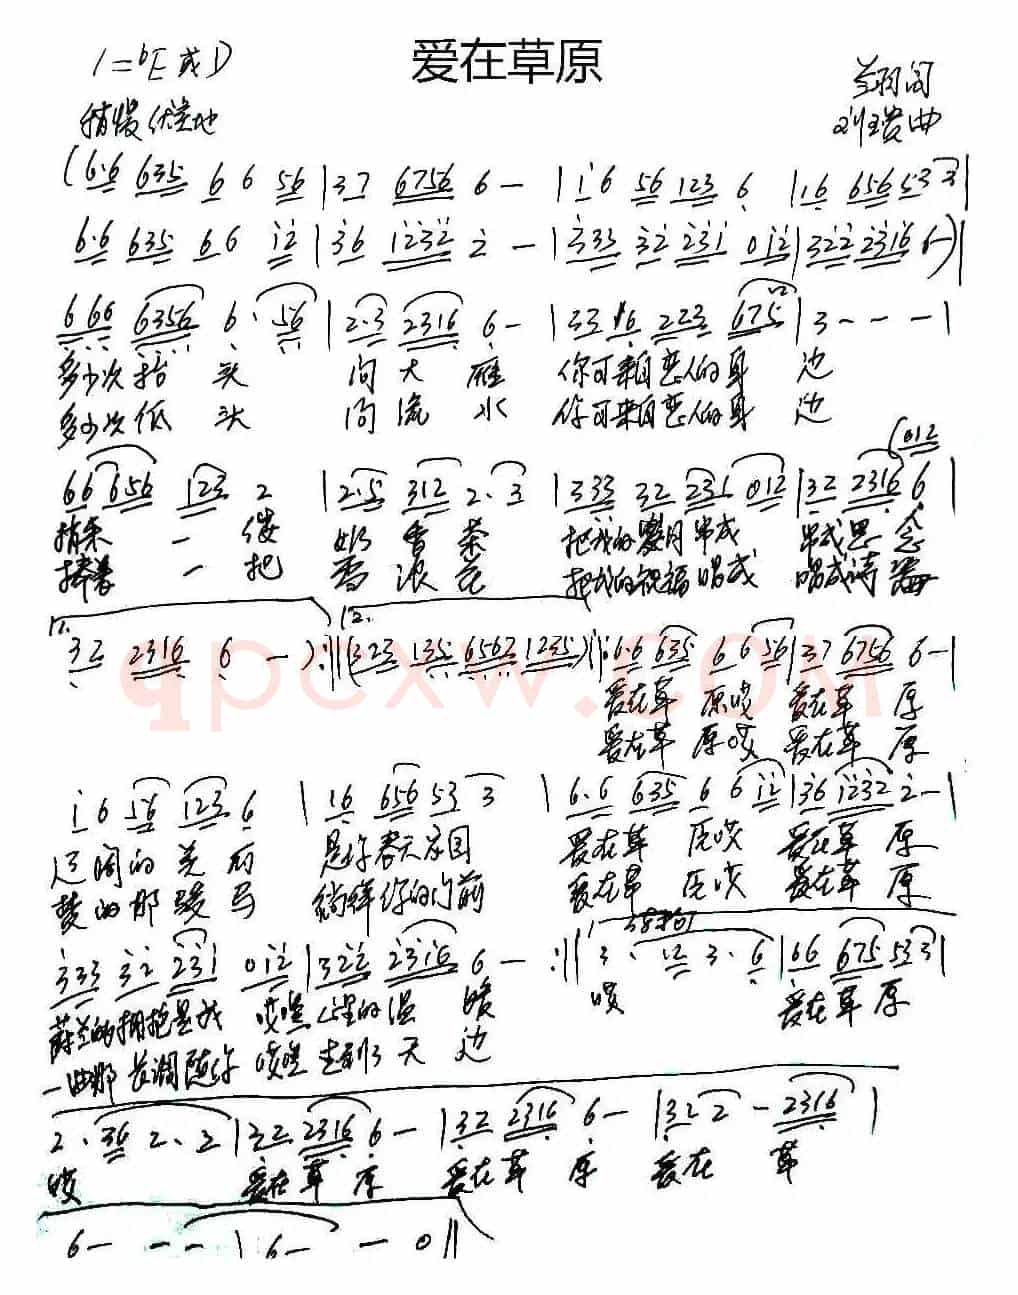 爱在草原
1=ᵇE或D
稍慢 优美地
刘瑗曲
(6·6 635 6 6 56 | 37 6756 6 — | 1 6 56 123 6 | 16 656 533 |
6·6 635 6 6 12 | 36 1232 2 — | 333 32 231 012 | 322 2316 6 —) |
666 6356 6· 56 | 2·3 2316 6 — | 33 16 223 675 | 3 — — — |
多少次抬 头 问 大 雁 你可来自恋人的身 边
多少次低 头 问 流 水 你可来自恋人的身 边
(012
66 656 123 2 | 2·5 312 2·3 | 333 32 231 012 | 32 2316 6 |
捎来 一 偻 奶 香 茶 把我的岁月串成 串成思 念
捧着 一 把 雪 浪 花 把我的祝福唱成 唱成诗
1. 2.
32 2316 6 — ) :|| (323 135 6563 1235) ||: 6·6 635 6 6 56 | 37 6756 6 — |
爱在草 原哎 爱在草 原
爱在草 原哎 爱在草 原
1 6 56 123 6 | 16 656 53 3 | 6·6 635 6 6 12 | 36 1232 2 — |
辽阔的 美 丽 是你春天家园 爱在草 原哎 爱在草 原
梦的那 骏 马 徜徉你的门前 爱在草 原哎 爱在草 原
333 32 231 012 | 322 2316 6 — :|| 3· 12 3· 6 | 66 675 533 |
的拥抱是我 哎嘿 心里的温 暖 哎 爱在草 原
一曲那 长调随你 哎嘿 走到了 天 边
2· 36 2· 2 | 32 2316 6 — | 32 2316 6 — | 32 2 — 2316 |
哎 爱在草 原 爱在草 原 爱在 草
6 — — — | 6 — — 0 ||
qpcxw.com